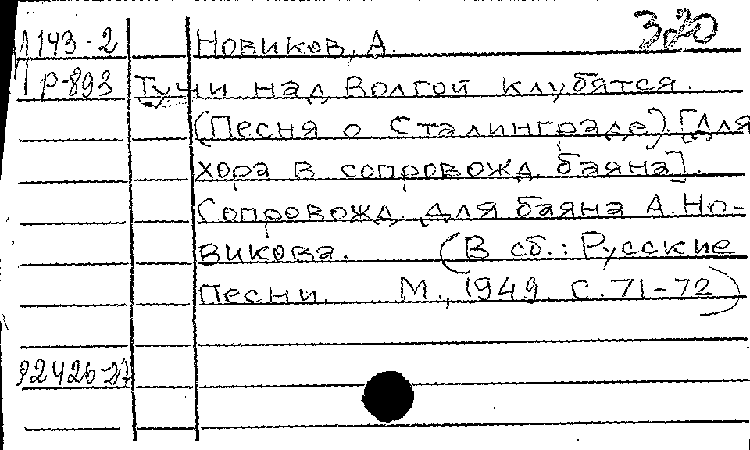 320
Л143-2 Новиков, А.
Р-893 Тучи над Волгой клубятся.
(Песня о Сталинграде) [Для
хора в сопровожд. баяна].
Сопровожд. для баяна А. Но-
викова. (В сб.: Русские
песни. М., 1949 с. 71-72)
92426-27